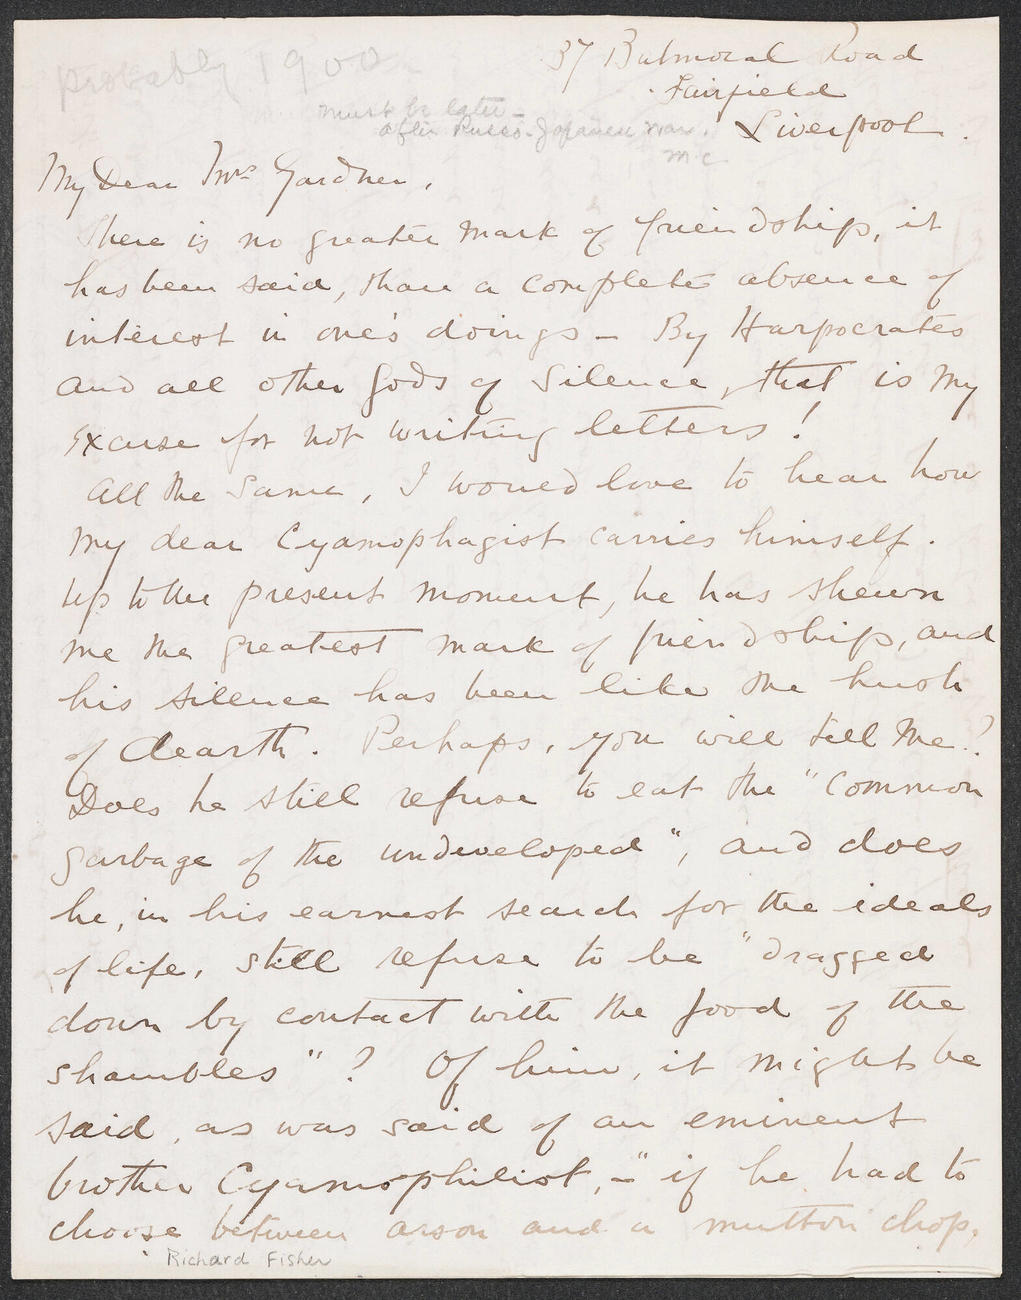 probably 1900
must be later -
after Russo-Japanese war.
M.C
37 Balmoral Road
Fairfield
Liverpool.
My Dear Mrs Gardner,
There is no greater mark of friendship, it
has been said, than a complete absence of
interest in one's doings - By Harpocrates
and all other Gods of Silence, that is my
excuse for not writing letters!
All the same, I would love to hear how
my dear Cyamophagist carries himself.
Up to the present moment, he has shewn
me the greatest mark of friendship, and
his silence has been like the hush
of dearth. Perhaps, you will tell me?
Does he still refuse to eat the "common
garbage of the undeveloped", and does
he, in his earnest search for the ideals
of life, still refuse to be "dragged
down by contact with the food of the
shambles"? Of him, it might be
said, as was said of an eminent
brother Cyamophilist, - "if he had to
choose between arson and a mutton chop,
Richard Fisher